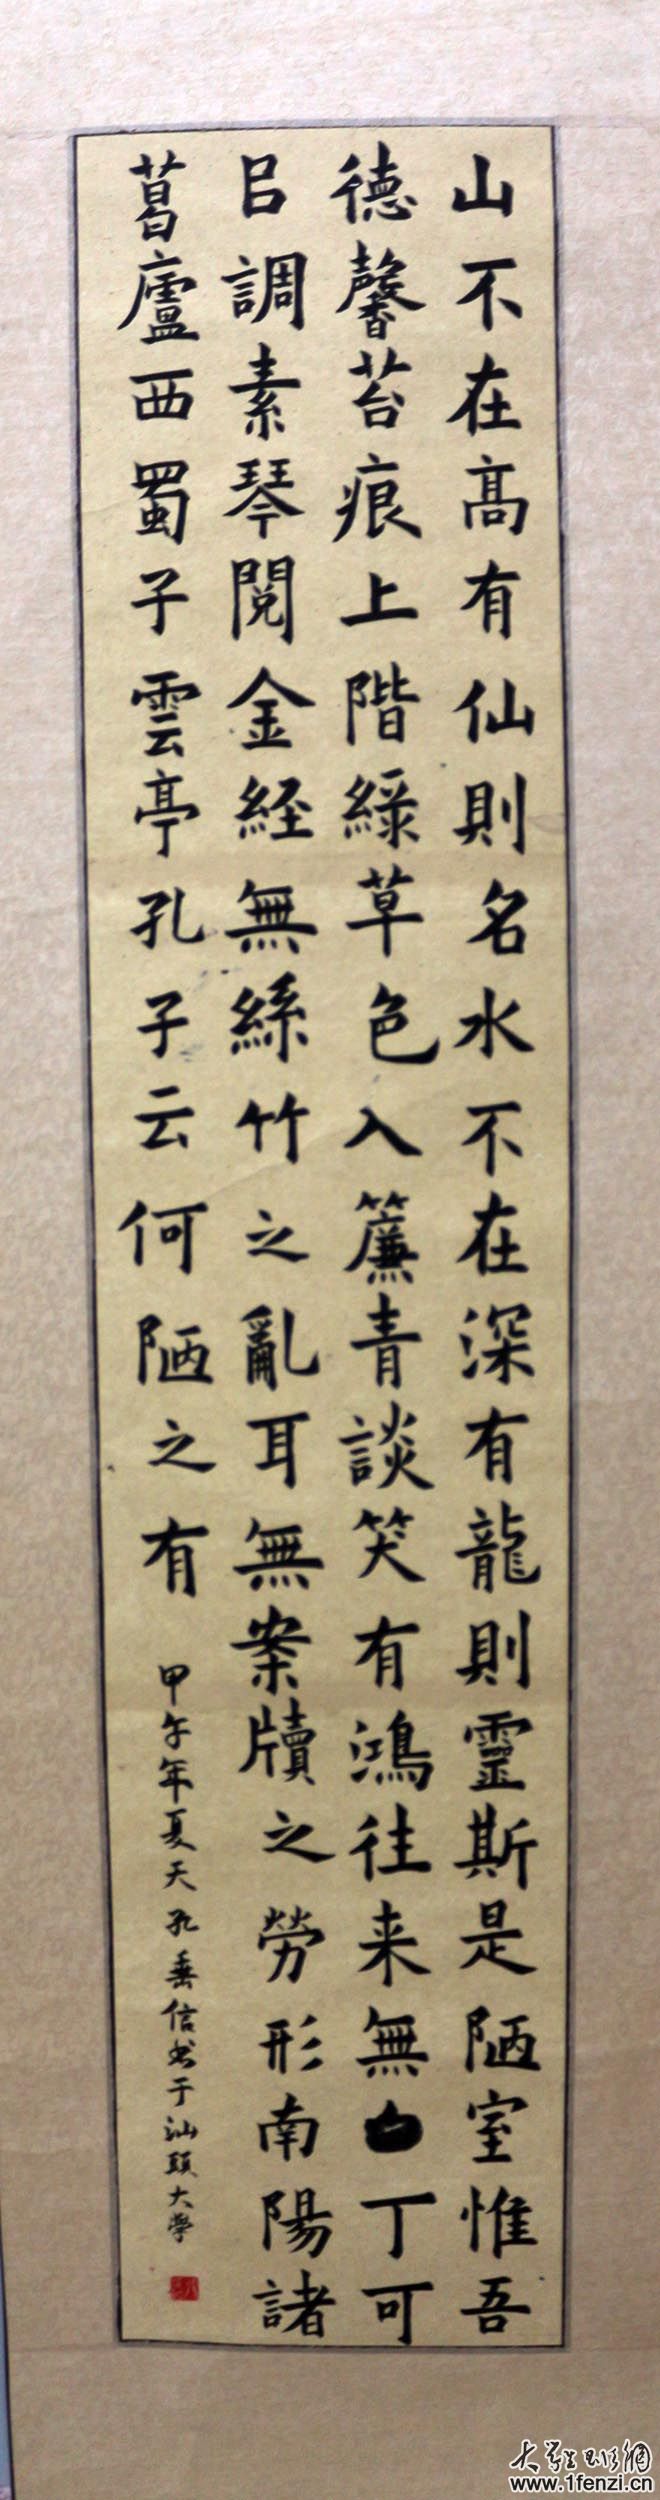 山不在髙有仙則名水不在深有龍則靈斯是陋室惟吾
德馨苔痕上階綠草色入簾青談笑有鴻往来無白丁可
㠯調素琴閱金経無絲竹之亂耳無案牘之勞形南陽諸
葛廬西蜀子雲亭孔子云何陋之有
甲午年夏天孔垂信书于汕頭大學
www.1fenzi.cn